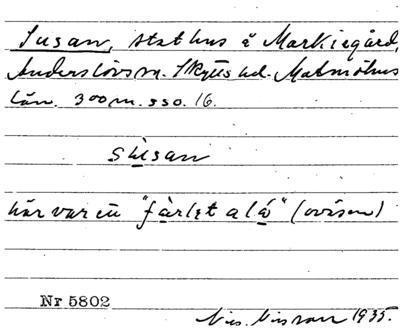 Susan, stathus å Markiegård,
Anderslövs sn. Skytts hd. Malmöhus
län. 300 m. sso. 16.
sùsan
här var en "fàrlet alá" (oväsen)
Nr 5802
Nils Nilsson 1935.